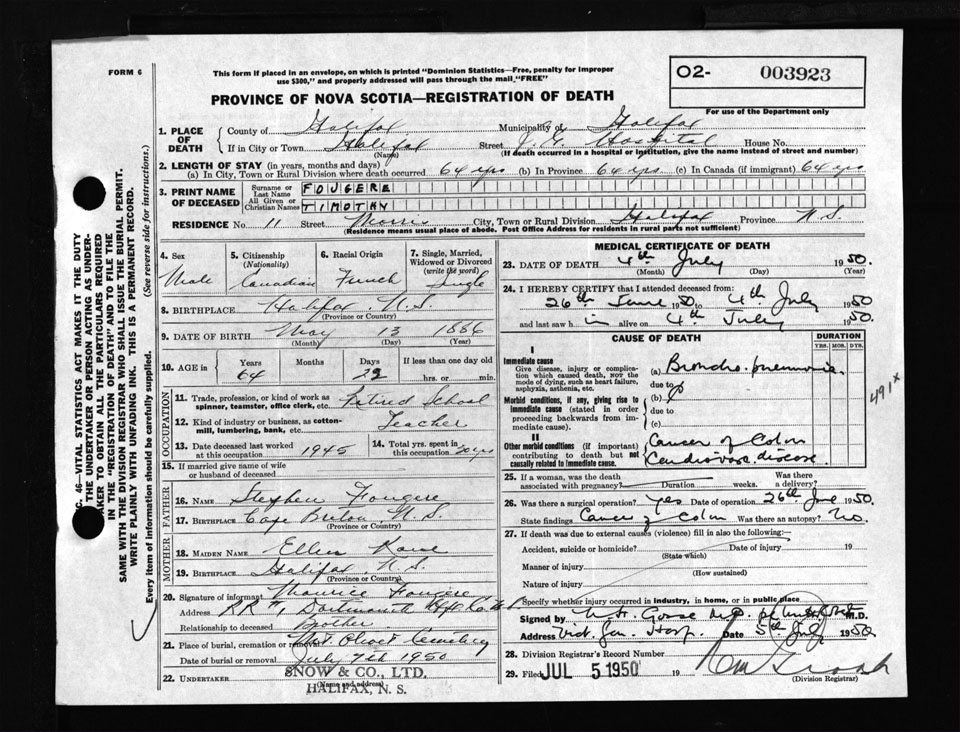 FORM 6
This form if placed in an envelope, on which is printed "Dominion Statistics—Free, penalty for improper
use $300," and properly addressed will pass through the mail "FREE"
O2- 003923
For use of the Department only
PROVINCE OF NOVA SCOTIA—REGISTRATION OF DEATH
1. PLACE OF DEATH { County of Halifax Municipality of Halifax
If in City or Town Halifax (Name) Street V.G. Hospital House No.
(If death occurred in a hospital or institution, give the name instead of street and number)
2. LENGTH OF STAY (in years, months and days)
(a) In City, Town or Rural Division where death occurred 64 yrs (b) In Province 64 yrs. (c) In Canada (if immigrant) 64 yrs
3. PRINT NAME OF DECEASED { Surname or Last Name FOUGERE
All Given or Christian Names TIMOTHY
RESIDENCE No. 11 Street Morris City, Town or Rural Division Halifax Province N.S.
(Residence means usual place of abode. Post Office Address for residents in rural parts not sufficient)
4. Sex Male
5. Citizenship (Nationality) Canadian
6. Racial Origin French
7. Single, Married, Widowed or Divorced (write the word) Single
8. BIRTHPLACE Halifax N.S.
(Province or Country)
9. DATE OF BIRTH May 13 1886
(Month) (Day) (Year)
10. AGE in { Years 64 Months Days 22 If less than one day old
hrs. or min.
OCCUPATION
11. Trade, profession, or kind of work as spinner, teamster, office clerk, etc. Retired School
12. Kind of industry or business, as cotton-mill, lumbering, bank, etc. Teacher
13. Date deceased last worked at this occupation 1945
14. Total yrs. spent in this occupation 30 yrs
15. If married give name of wife or husband of deceased
FATHER
16. NAME Stephen Fougere
17. BIRTHPLACE Cape Breton N.S.
(Province or Country)
MOTHER
18. MAIDEN NAME Ellen
19. BIRTHPLACE Halifax N.S.
(Province or Country)
20. Signature of informant Maurice Fougere
Address RR #1, Dartmouth Hfx Co. N.S.
Relationship to deceased Brother
21. Place of burial, cremation or removal Mt. Olivet Cemetery
Date of burial or removal July 7th 1950
22. UNDERTAKER SNOW & CO., LTD.
(Name and address)
HALIFAX, N. S.
MEDICAL CERTIFICATE OF DEATH
23. DATE OF DEATH 4th July 1950.
(Month) (Day) (Year)
24. I HEREBY CERTIFY that I attended deceased from:
26th June 1950 to 4th July 1950
and last saw h im alive on 4th July 1950.
CAUSE OF DEATH
DURATION
YRS. MOS. DYS.
I
Immediate cause
Give disease, injury or complication which caused death, NOT the mode of dying, such as heart failure, asphyxia, asthenia, etc.
(a) Broncho-pneumonia.
due to
Morbid conditions, if any, giving rise to immediate cause (stated in order proceeding backwards from immediate cause).
(b)
due to
(c)
II
Other morbid conditions (if important) contributing to death but not causally related to immediate cause.
Cancer of Colon
Cardiovasc. disease.
491x
25. If a woman, was the death associated with pregnancy? Duration weeks. Was there a delivery?
26. Was there a surgical operation? Yes Date of operation 26th June 1950.
State findings Cancer of colon Was there an autopsy? No.
27. If death was due to external causes (violence) fill in also the following:
Accident, suicide or homicide? Date of injury 19
(State which)
Manner of injury
(How sustained)
Nature of injury
Specify whether injury occurred in industry, in home, or in public place
Signed by M.D.
Address Vict. Gen. Hosp. Date 5th July 1950
28. Division Registrar's Record Number
29. Filed JUL 5 1950 19
(Division Registrar)
C. 46—VITAL STATISTICS ACT MAKES IT THE DUTY
OF THE UNDERTAKER OR PERSON ACTING AS UNDER-
TAKER TO OBTAIN ALL THE PARTICULARS REQUIRED
IN THE "REGISTRATION OF DEATH" AND TO FILE THE
SAME WITH THE DIVISION REGISTRAR WHO SHALL ISSUE THE BURIAL PERMIT.
WRITE PLAINLY WITH UNFADING INK. THIS IS A PERMANENT RECORD.
Every item of information should be carefully supplied. (See reverse side for instructions.)